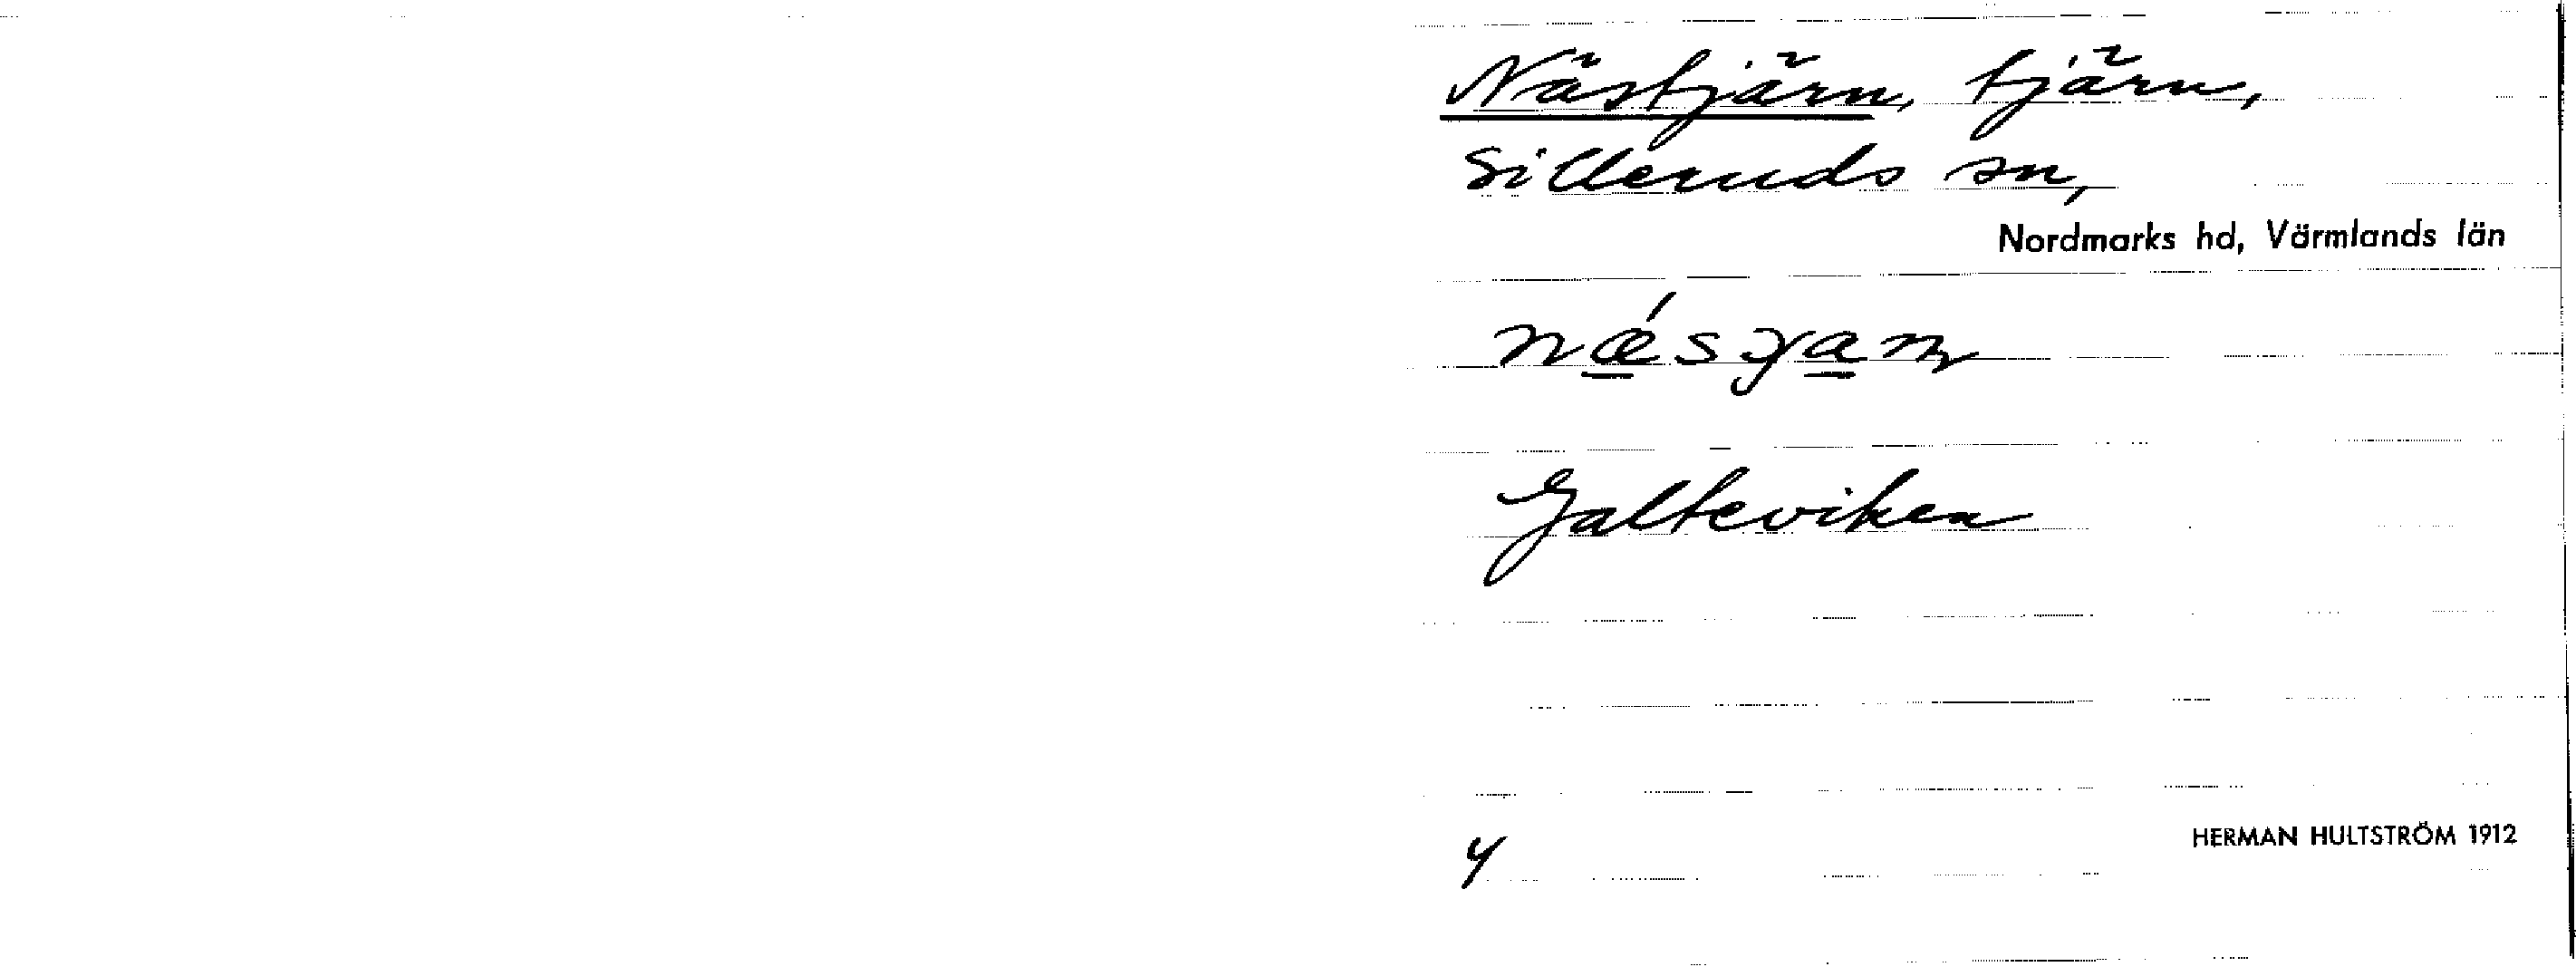 Nästjärn, tjärn,
Silleruds sn,
Nordmarks hd, Värmlands län
Galteviken
4
HERMAN HULTSTRÖM 1912